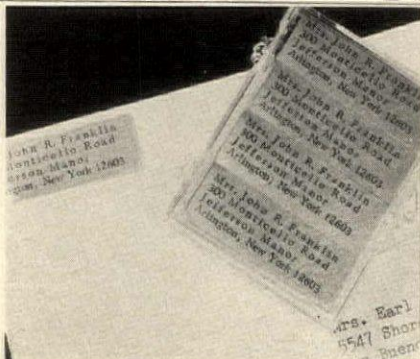 John R. Franklin
Monticello Road
Jefferson Manor
New York 12603
Mrs. John R. Franklin
300 Monticello Road
Jefferson Manor
Arlington, New York 12603
Mrs. John R. Franklin
300 Monticello Road
Jefferson Manor
Arlington, New York 12603
Mrs. John R. Franklin
300 Monticello Road
Jefferson Manor
Arlington, New York 12603
Mrs. John R. Franklin
300 Monticello Road
Jefferson Manor
Arlington, New York 12603
Mrs. Earl
5547 Shor
Buen